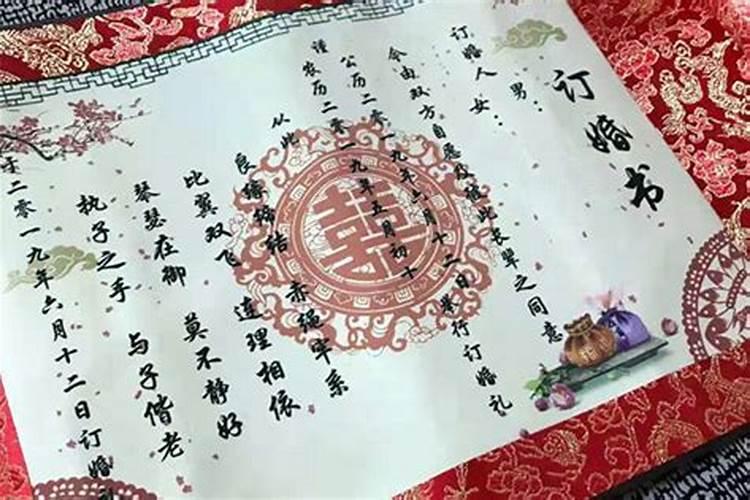 订婚书
订婚人 男：
女：
今由双方自愿及 彼此长辈之同意
公历二零一九年六月十二日举行订婚礼
谨 农历二零一九年五月初十
从此 良缘缔结 赤绳牢系
比翼双飞 连理相依
琴瑟在御 莫不静好
执子之手 与子偕老
于二零一九年六月十二日订婚